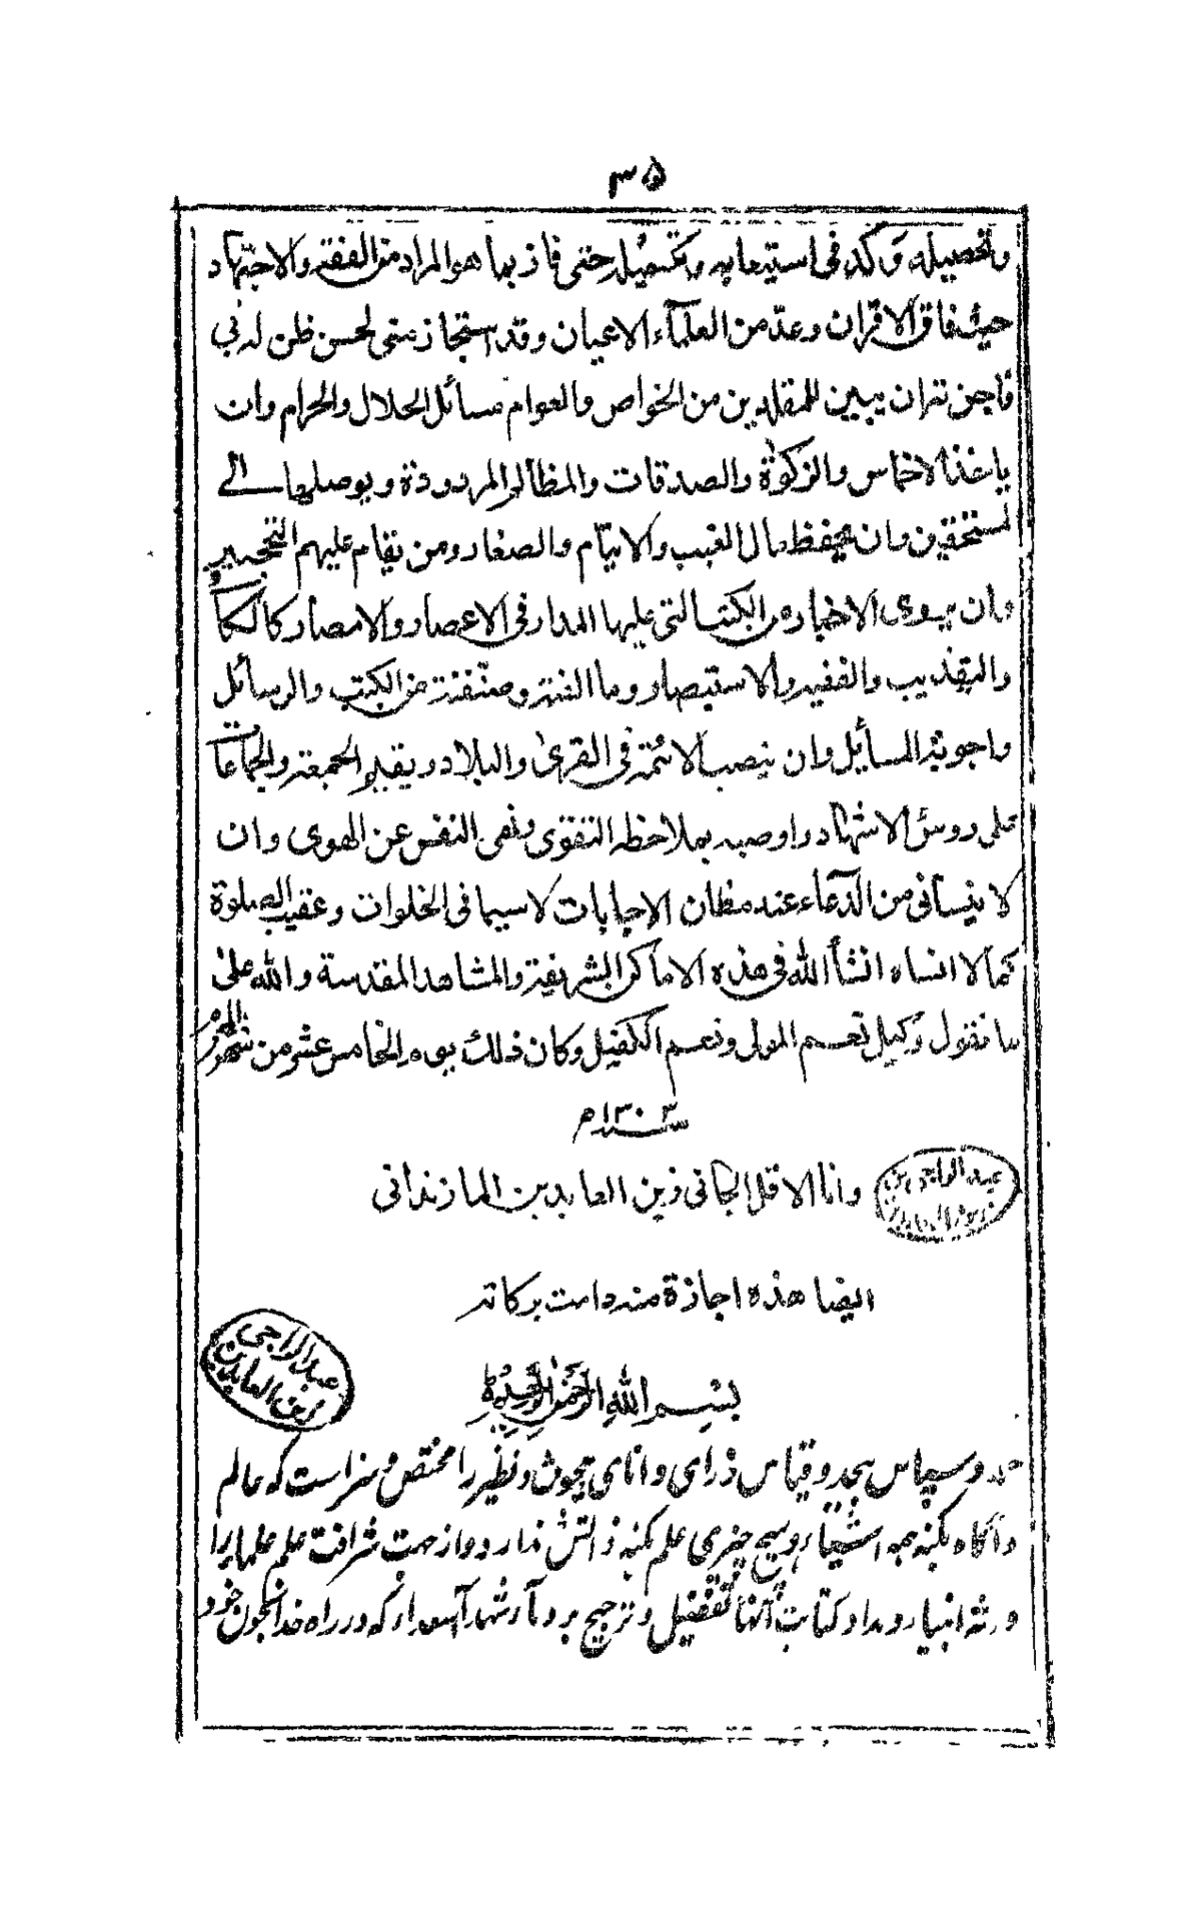 ۳۵
وتحصيله وكد فى استيعابه وتكميله حتى فاز بما هو المراد من الفقه والاجتهاد
حيث فاق الاقران وعدّ من العلمآء الاعيان وقد استجاز منى لحسن ظن له بي
فاجزته ان يبين للمقلدين من الخواص والعوام مسائل الحلال والحرام وان
ياخذ الاخماس والزكوٰة والصدقات والمظالم المردودة ويوصلها الے
لمستحقين وان يحفظ مال الغيب والايتام والصغار ومن يقام عليهم
وان يروى الاخبار من الكتب التى عليها المدار فى الاعصار والامصار كالكا
والتهذيب والفقيه والاستبصار وما الفته وصنفته من الكتب والرسائل
واجوبة المسائل وان ينصب الائمة فى القرىٰ والبلاد ويقيم الجمعة والجماعات
على روس الاشهاد واوصيه بملاحظه التقوى ونهى النفس عن الهوى وان
لا ينسانى من الدعاء عند مظان الاجابات لا سيما فى الخلوات وعقيب الصلوة
كما لا انساه انشأ الله فى هذه الاماكن الشريفة والمشاهد المقدسة والله علىٰ
ما نقول وكيل نعم المولى ونعم الكفيل وكان ذلك يوم الخامس عشر من شهر
سنه ۱۳۰۳م
وانا الاقل الجانى زين العابدين المازندانى
عبده الراجى بن
زين العابدين
ايضا هذه اجازة منه دامت بركاته
عبده الراجى
زين العابدين
بسم الله الرحمن الرحيم
حمد و سپاس بيحد و قياس ذراى دانای بيچون و نظير را مختص و سزاست كه عالم
و آگاه بكنه همه اشياء و هيچ چيزى علم بكنه ذاتش ندارد و از جهت شرافت علم علما را
ورثه انبيا و مداد كتابت آنها تفضيل و ترجيح بر دمآء شهدآء كه در راه خدا بخون خود